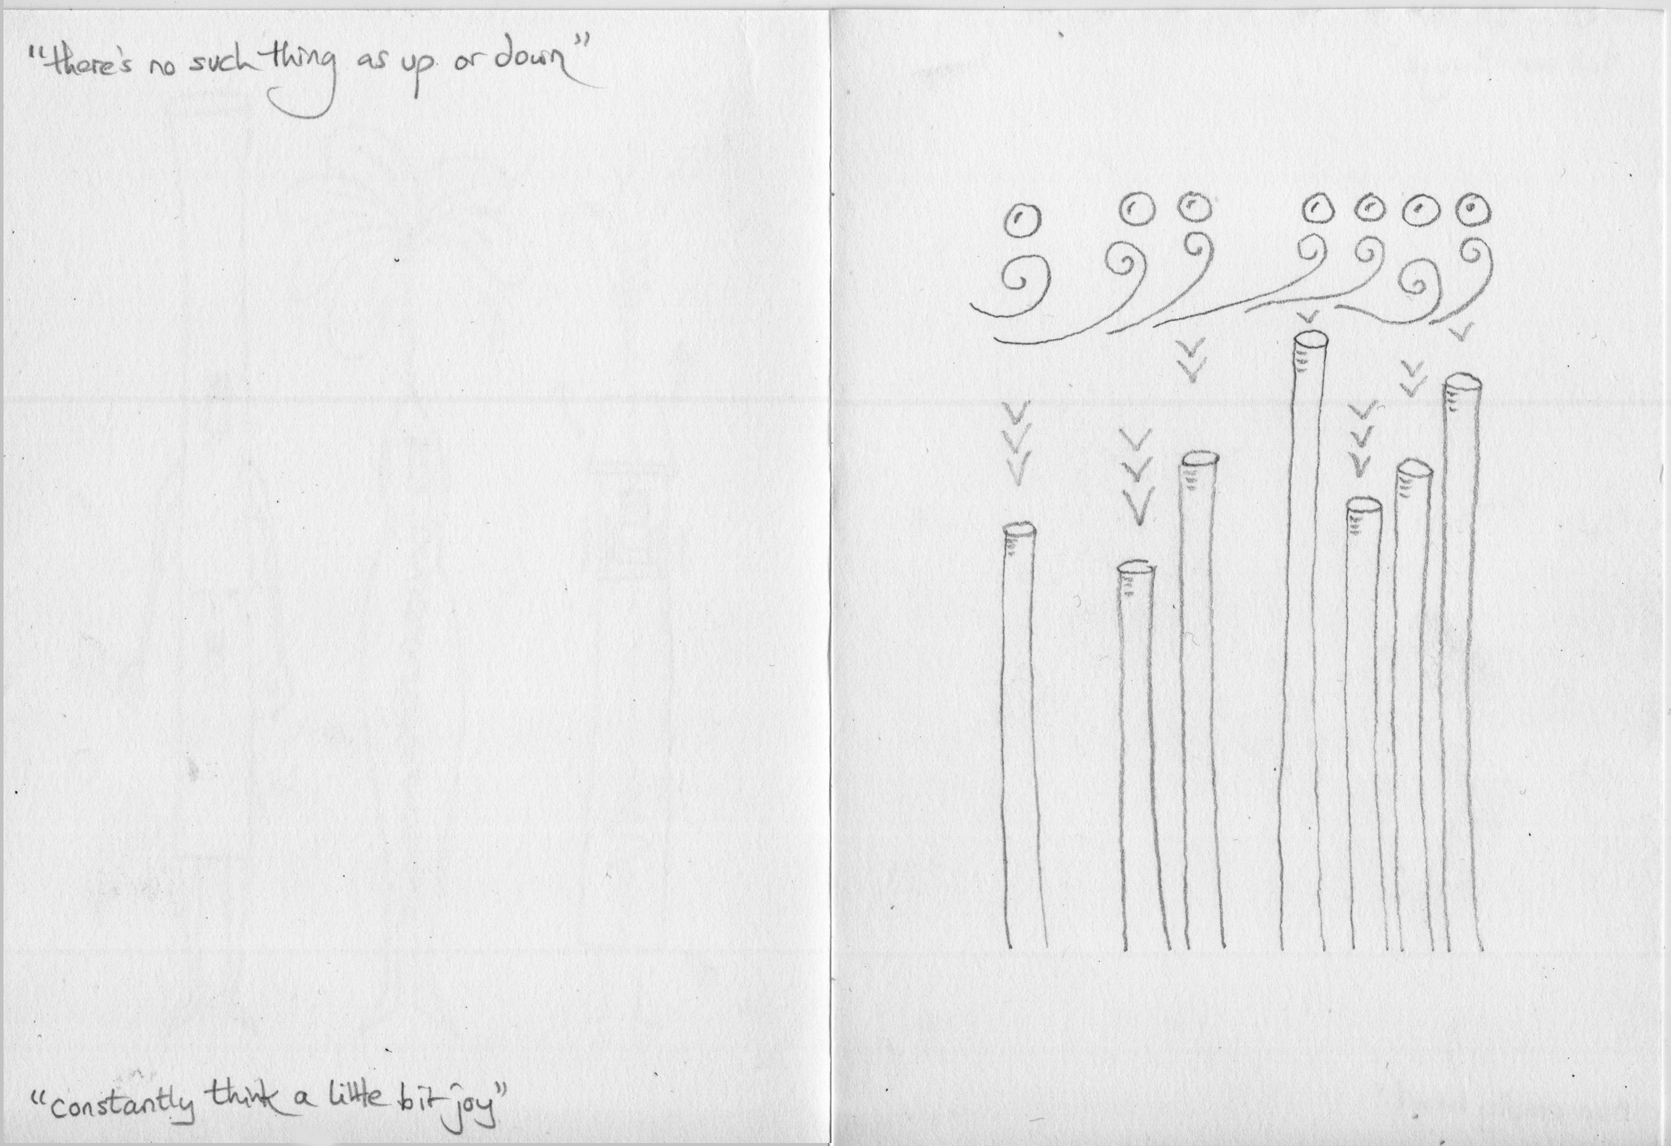 "there's no such thing as up or down"
"constantly think a little bit joy"